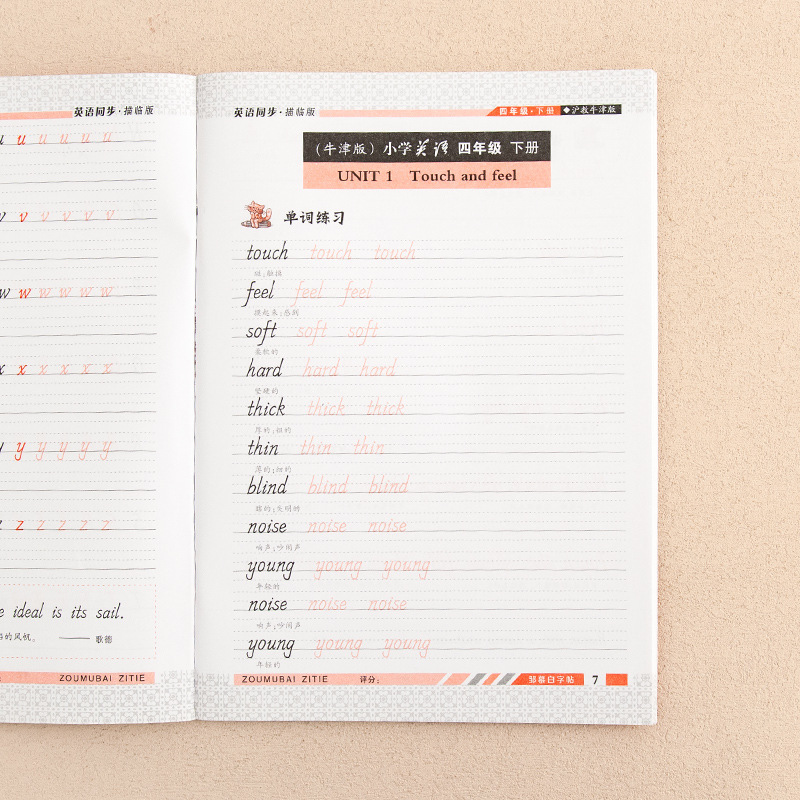 英语同步·描临版
u u u u u u
v v v v v v
w w w w w w
x x x x x x
y y y y y y
z z z z z z
ideal is its sail.
的风帆。 —— 歌德
ZOUMUBAI ZITIE
英语同步·描临版
四年级·下册 ◆沪教牛津版
（牛津版）小学英语 四年级 下册
UNIT 1 Touch and feel
单词练习
touch touch touch
碰;触摸
feel feel feel
摸起来;感到
soft soft soft
柔软的
hard hard hard
坚硬的
thick thick thick
厚的;粗的
thin thin thin
薄的;细的
blind blind blind
瞎的;失明的
noise noise noise
响声;吵闹声
young young young
年轻的
noise noise noise
响声;吵闹声
young young young
年轻的
ZOUMUBAI ZITIE 评分：
邹慕白字帖 7